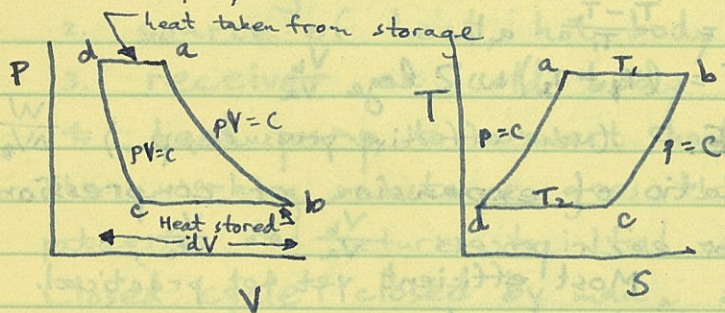 heat taken from storage
d a
P
pV=C
pV=C
c b
Heat stored
dV
V
T
a T₁ b
p=C
p=C
d T₂ c
S